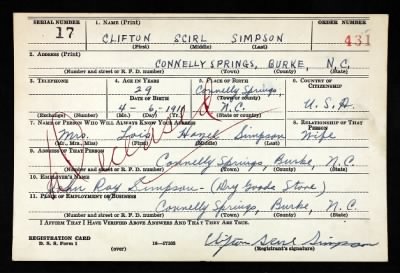 SERIAL NUMBER 1. NAME (Print) ORDER NUMBER
17 CLIFTON SCIRL SIMPSON 431
(First) (Middle) (Last)
2. ADDRESS (Print)
CONNELLY SPRINGS, BURKE, N.C.
(Number and street or R. F. D. number) (Town) (County) (State)
3. TELEPHONE 4. AGE IN YEARS 5. PLACE OF BIRTH 6. COUNTRY OF CITIZENSHIP
29 Connelly Springs,
DATE OF BIRTH (Town or county)
4-6-1911 N.C. U.S.A.
(Exchange) (Number) (Mo.) (Day) (Yr.) (State or country)
7. NAME OF PERSON WHO WILL ALWAYS KNOW YOUR ADDRESS 8. RELATIONSHIP OF THAT PERSON
Mrs. Lois Simpson Wife
(Mr., Mrs., Miss) (First) (Middle) (Last)
9. ADDRESS OF THAT PERSON
Connelly Springs, Burke, N.C.
(Number and street or R. F. D. number) (Town) (County) (State)
10. EMPLOYER'S NAME
Ray Simpson - (Dry Goods Store)
11. PLACE OF EMPLOYMENT OR BUSINESS
Connelly Springs, Burke, N.C.
(Number and street or R. F. D. number) (Town) (County) (State)
I AFFIRM THAT I HAVE VERIFIED ABOVE ANSWERS AND THAT THEY ARE TRUE.
REGISTRATION CARD
D. S. S. Form 1 (over) 16-17105 Clifton Scirl Simpson
(Registrant's signature)
Deceased